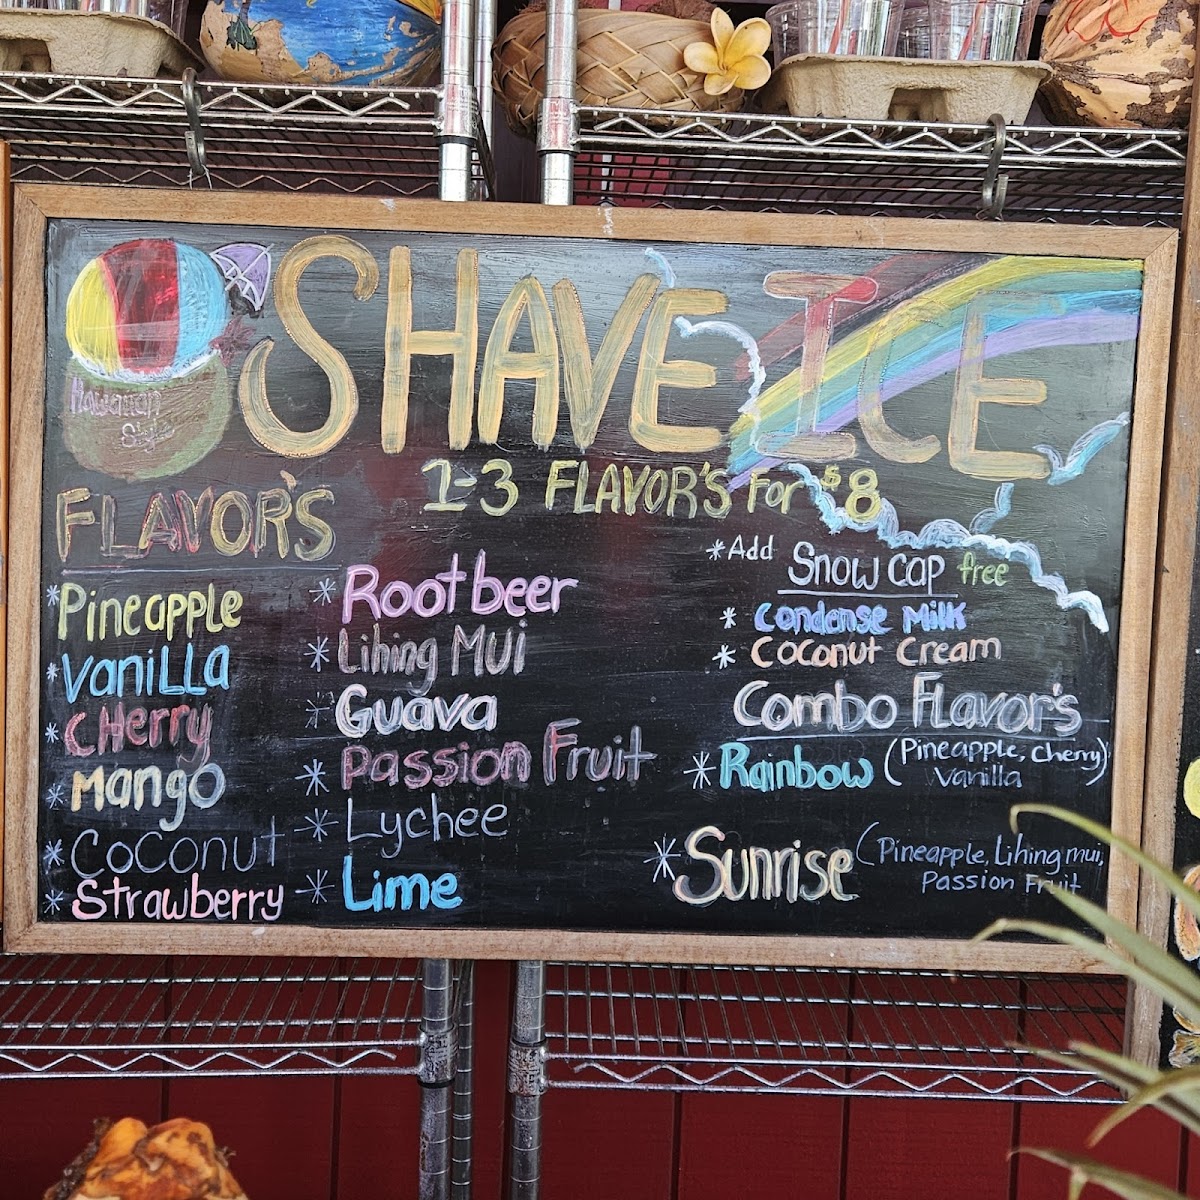 SHAVE ICE
Hawaiian
Style
1-3 FLAVOR'S For $8
FLAVOR'S
*Pineapple
*Vanilla
*Cherry
*Mango
*Coconut
*Strawberry
*Root beer
*Lihing Mui
*Guava
*Passion Fruit
*Lychee
*Lime
*Add Snow Cap free
*Condense Milk
*Coconut Cream
Combo Flavor's
*Rainbow (Pineapple, Cherry,
Vanilla)
*Sunrise (Pineapple, Lihing mui,
Passion Fruit